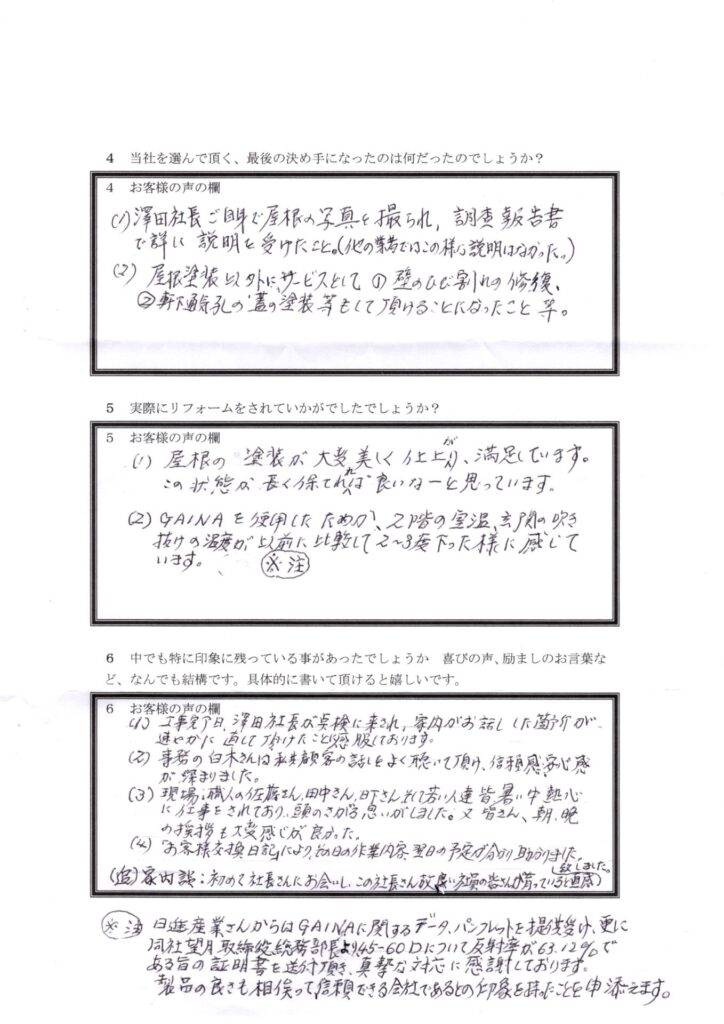 4 当社を選んで頂く、最後の決め手になったのは何だったのでしょうか？
4 お客様の声の欄
(1)澤田社長ご自身で屋根の写真を撮られ，調査報告書
で詳に説明を受けたこと。(他の業者ではこの様な説明はなかった。)
(2) 屋根塗装以外に、サービスとして①壁のひび割れの修復、
②軒下通気孔の蓋の塗装等もして頂けることになったこと等。
5 実際にリフォームをされていかがでしたでしょうか？
5 お客様の声の欄
(1) 屋根の塗装が大変美しく仕上がり、満足しています。
この状態が長く保てれば良いなーと思っています。
(2) GAINAを使用したためか、2階の室温、玄関の吹き
抜けの温度が以前に比較して2~3度下った様に感じて
います。 ※注
6 中でも特に印象に残っている事があったでしょうか 喜びの声、励ましのお言葉な
ど、なんでも結構です。具体的に書いて頂けると嬉しいです。
6 お客様の声の欄
(1) 工事完了日、澤田社長が点検に来され，家内がお話しした箇所が
速やかに直して頂けたこと感服しております。
(2) 事務の白木さんは私共顧客の話しをよく聴いて頂け、信頼感、安心感
が深まりました。
(3) 現場：職人の佐藤さん，田中さん，日下さん，そして若い人達皆暑い中熱心
に仕事をされており、頭のさがる思いがしました。又皆さん、朝、晩
の挨拶も大変感じが良かった。
(4) 「お客様交換日記」により、その日の作業内容、翌日の予定が分り助かりました。
(追)家内談：初めて社長さんにお会いし、この社長さん故良い社員の皆さんが育っていると直感
致しました。)
※注 日進産業さんからはGAINAに関するデータ、パンフレットを提供受け、更に
同社望月取締役総務部長より45-60Dについて反射率が63.12%で
ある旨の証明書を送付頂き、真摯な対応に感謝しております。
製品の良さも相俟って、信頼できる会社であるとの印象を持ったことを申添えます。